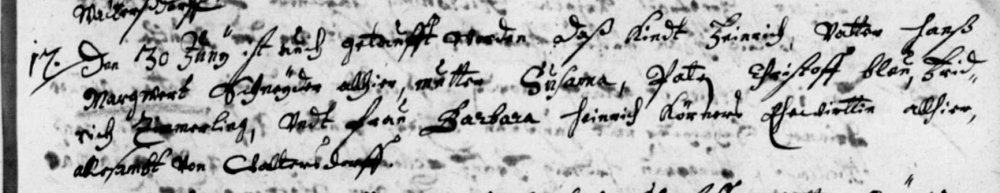 Waltersdorff
17. Den 30 Juny ist auch getaufft worden daß Kindt Heinrich, Vatter Hanß
Margwert Schneyder alhier, mutter Susanna, Pate Christoff blau, Frid-
rich Zimmerling, Undt Frau Barbara Heinrich Körners Ehewirttin alhier,
allesambt von Waltersdorff.